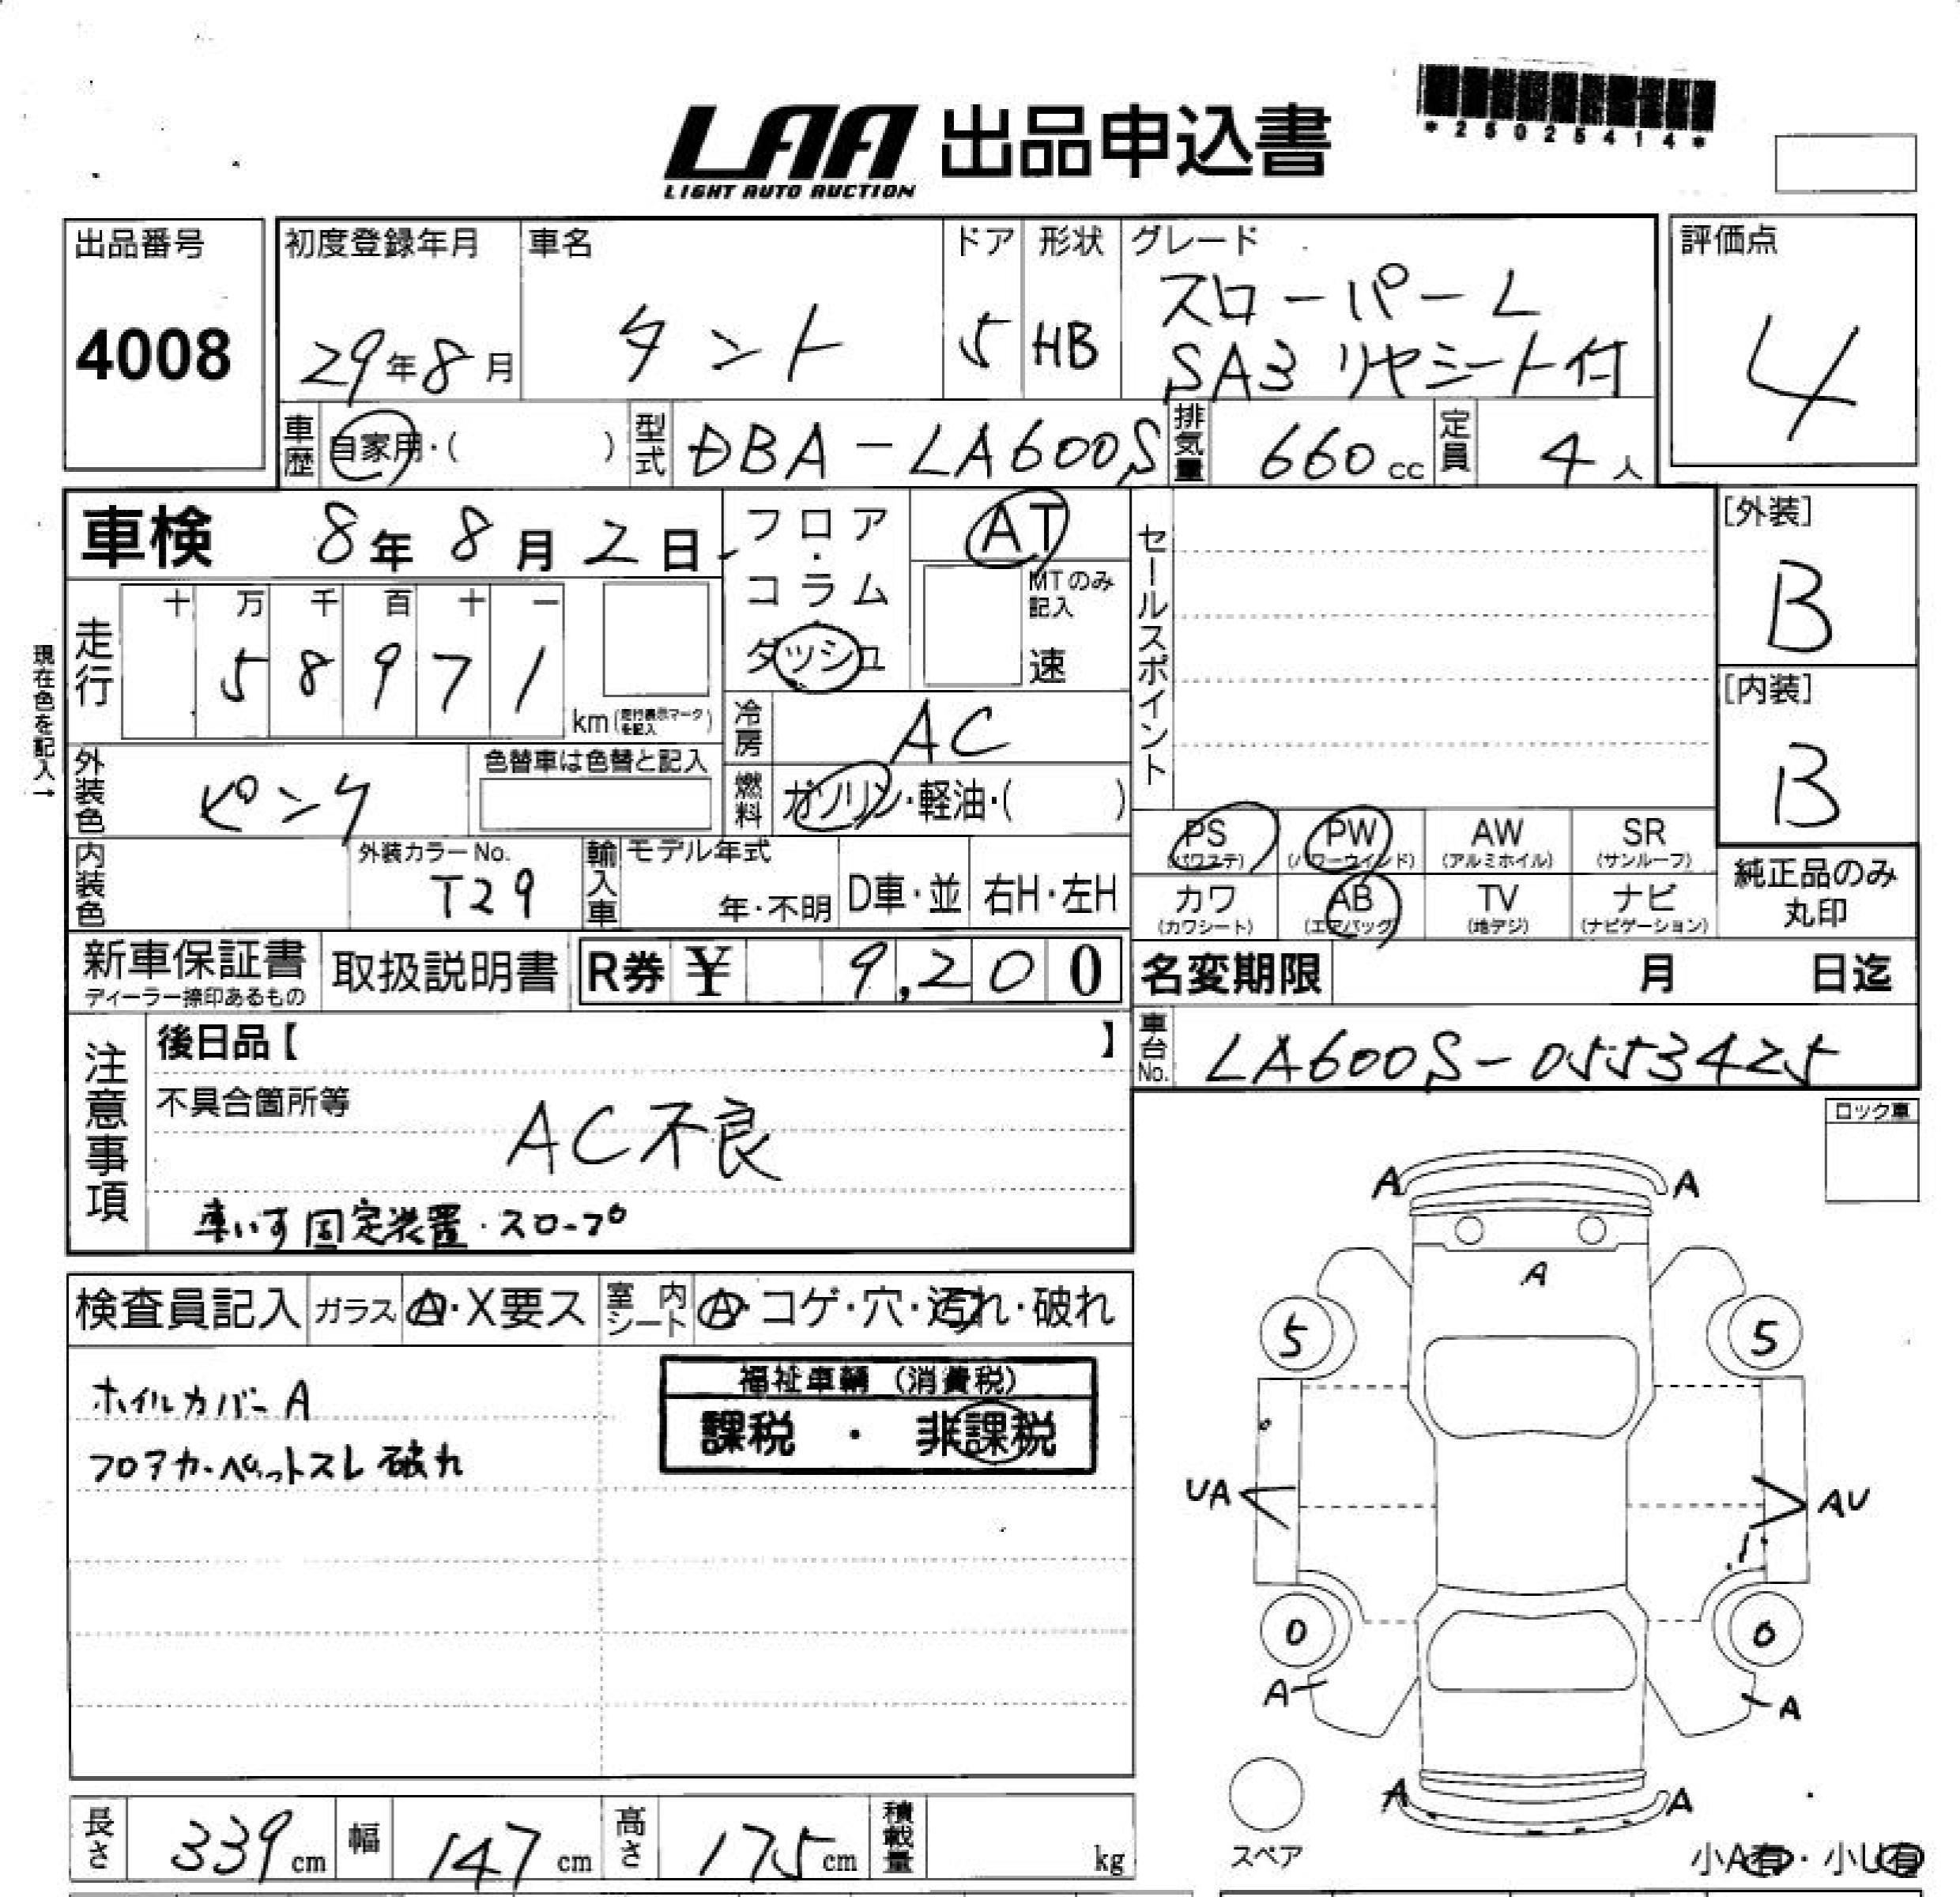 LAA 出品申込書
LIGHT AUTO AUCTION
*25025414*
出品番号
4008
初度登録年月
29年8月
車名
タント
ドア
5
形状
HB
グレード
スローパーL
SA3 リヤシート付
評価点
4
車歴
自家用・( )
型式
DBA-LA600S
排気量
660cc
定員
4人
車検 8年8月2日
フロア・コラム
ダッシュ
AT
MTのみ記入
速
セールスポイント
[外装]
B
[内装]
B
現在色を記入→
走行
十 万 千 百 十 一
5 8 9 7 1
km(走行表示マークを記入)
冷房
AC
外装色
ピンク
色替車は色替と記入
燃料
ガソリン・軽油・( )
PS
(パワステ)
PW
(パワーウインド)
AW
(アルミホイル)
SR
(サンルーフ)
内装色
外装カラーNo.
T29
輸入車
モデル年式
年・不明
D車・並
右H・左H
カワ
(カワシート)
AB
(エアバッグ)
TV
(地デジ)
ナビ
(ナビゲーション)
純正品のみ
丸印
新車保証書
ディーラー捺印あるもの
取扱説明書
R券 ¥ 9,200
名変期限 月 日迄
車台No.
LA600S-0553425
注意事項
後日品【 】
不具合箇所等
AC不良
車いす固定装置・スロープ
ロック車
A A
A
5 5
UA AU
0 0
A A
A A
スペア
小A有・小U有
検査員記入
ガラス
A・X要ス
室内シート
A・コゲ・穴・汚れ・破れ
ホイルカバーA
フロアカーペットスレ破れ
福祉車輌(消費税)
課税・非課税
長さ
339cm
幅
147cm
高さ
175cm
積載量
kg